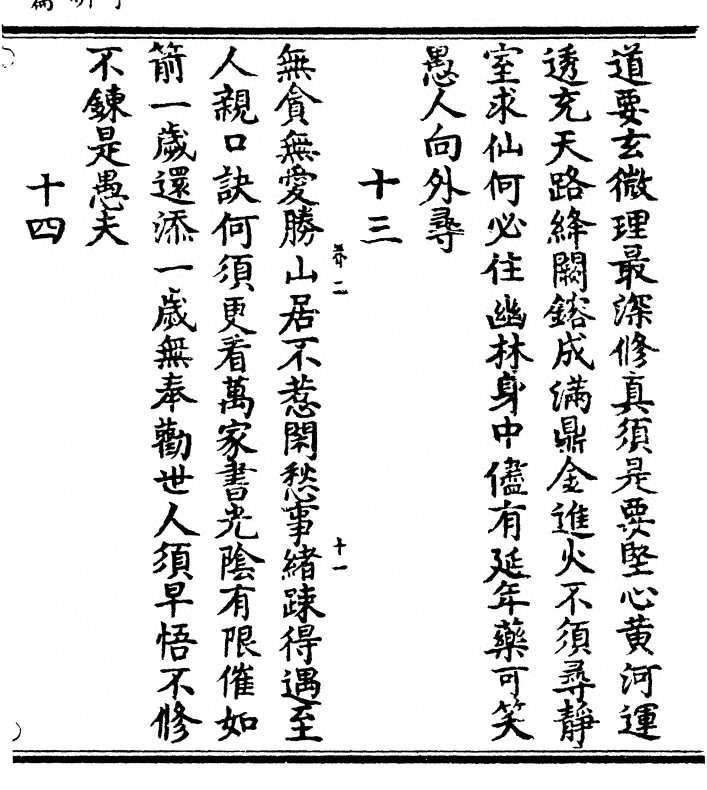 道要玄微理最深修真須是要堅心黃河運
透充天路絳闕鎔成滿鼎金進火不須尋靜
室求仙何必往幽林身中儘有延年藥可笑
愚人向外尋
十三
卷二
十一
無貪無愛勝山居不惹閑愁事緒踈得遇至
人親口訣何須更看萬家書光陰有限催如
箭一歲還添一歲無奉勸世人須早悟不修
不鍊是愚夫
十四